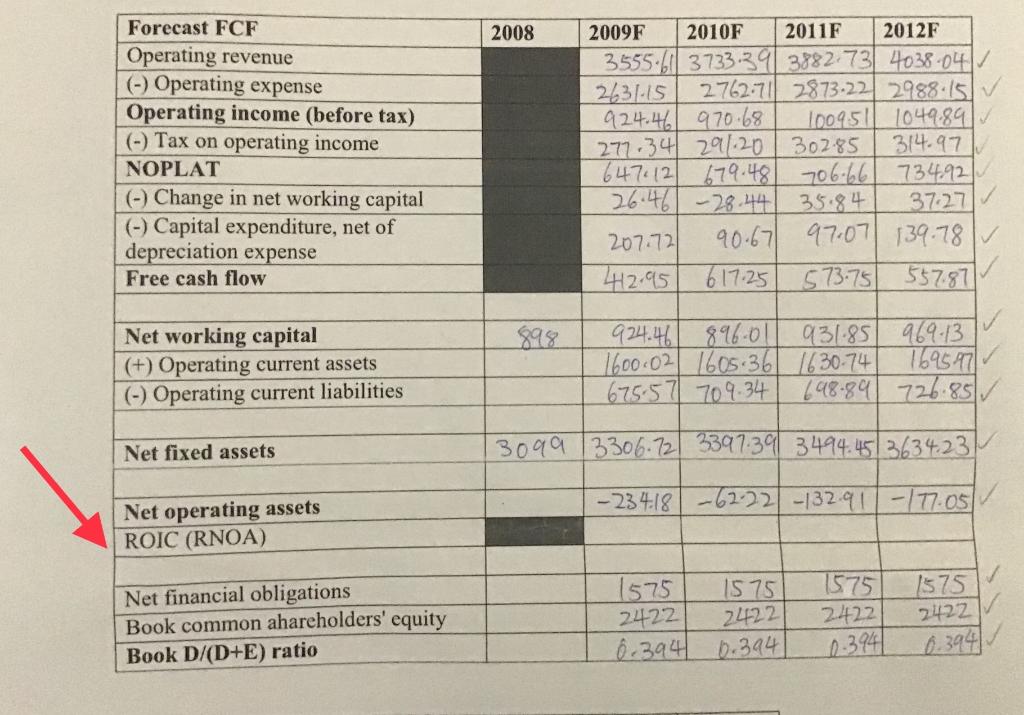 Forecast FCF 2008 2009F 2010F 2011F 2012F
Operating revenue 3555.61 3733.39 3882.73 4038.04 ✓
(-) Operating expense 2631.15 2762.71 2873.22 2988.15 ✓
Operating income (before tax) 924.46 970.68 1009.51 1049.89 ✓
(-) Tax on operating income 277.34 291.20 302.85 314.97 ✓
NOPLAT 647.12 679.48 706.66 734.92 ✓
(-) Change in net working capital 26.46 -28.44 35.84 37.27 ✓
(-) Capital expenditure, net of
depreciation expense 207.72 90.67 97.07 139.78 ✓
Free cash flow 412.95 617.25 573.75 557.87 ✓
Net working capital 898 924.46 896.01 931.85 969.13 ✓
(+) Operating current assets 1600.02 1605.36 1630.74 1695.97 ✓
(-) Operating current liabilities 675.57 709.34 698.89 726.85 ✓
Net fixed assets 3099 3306.72 3397.39 3494.45 3634.23 ✓
Net operating assets -234.18 -62.22 -132.91 -177.05 ✓
ROIC (RNOA)
Net financial obligations 1575 1575 1575 1575 ✓
Book common ahareholders' equity 2422 2422 2422 2422 ✓
Book D/(D+E) ratio 0.394 0.394 0.394 0.394 ✓